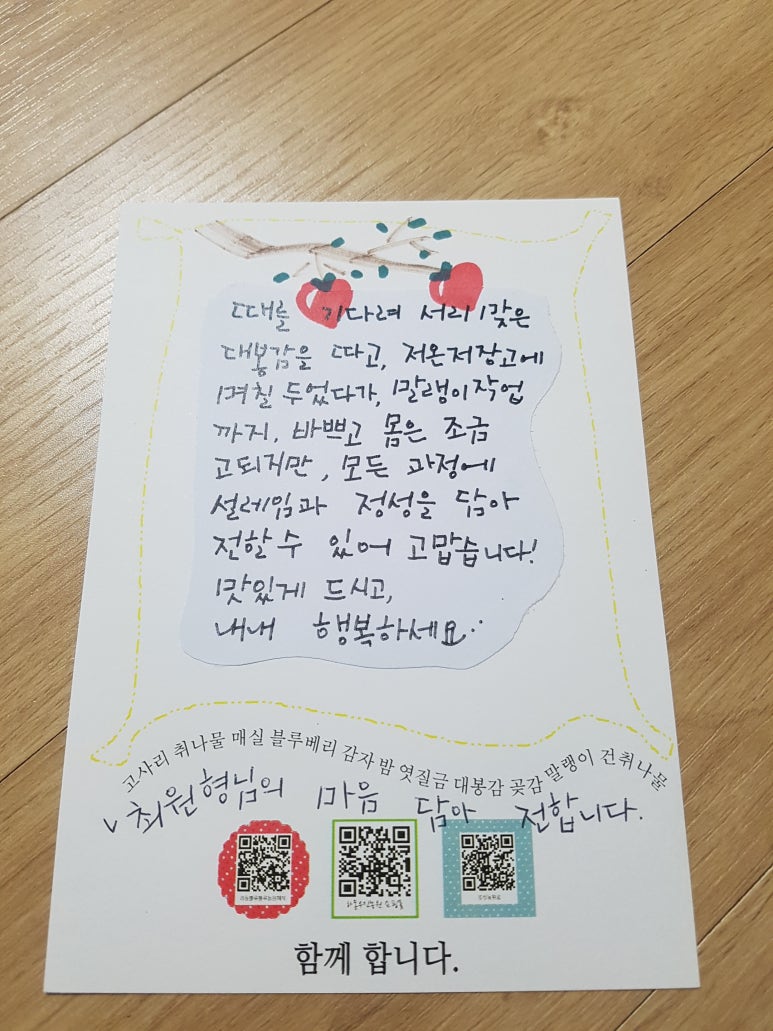 때를 기다려 서리맞은
대봉감을 따고, 저온저장고에
며칠 두었다가, 말랭이작업
까지, 바쁘고 몸은 조금
고되지만, 모든 과정에
설레임과 정성을 담아
전할 수 있어 고맙습니다!
맛있게 드시고,
내내 행복하세요..
고사리 취나물 매실 블루베리 감자 밤 엿질금 대봉감 곶감 말랭이 건취나물
v 최원형님의 마음 담아 전합니다.
함께 합니다.